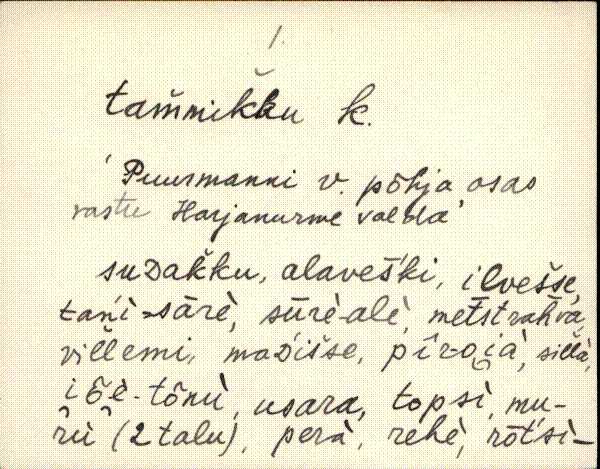 1.
tam̆mik̆ku k.
'Puurmanni v. põhja osas
vastu Harjanurme valda'
sudak̆ku, alaveški, ilvešše,
tańi-sārè, sūrè-alè, metstrahva,
villemi, madišše, pîr-oja, sillà,
iõè-tõnù, usara, topsì, mu-
rù (2 talu), perà, rehè, rõtsì-